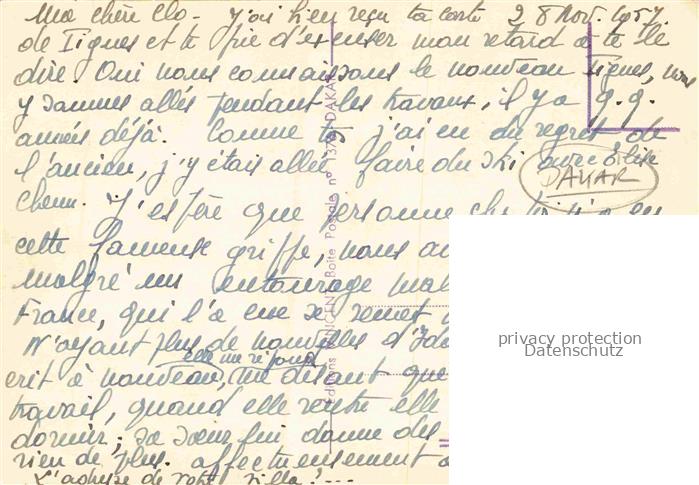 Ma chère Clo. j'ai bien reçu ta carte 28 Nov. 1957.
de Tignes et te prie d'excuser mon retard à te le
dire. Oui nous connaissons le nouveau Tignes, nous
y sommes allés pendant les travaux, il y a q.q.
années déjà. Comme toi j'ai eu du regret de
l'ancien, j'y étais allée faire du ski avec
DAKAR
J'espère que personne chez toi n'a eu
cette fameuse grippe, nous
malgré un entourage
France, qui l'a eue se remet
N'ayant plus de nouvelles d'
elle me répond
crit à nouveau, me disant que
travail, quand elle rentre elle
dormir; sa sœur lui donne des
rien de plus. affectueusement
L'adresse de votre villa!...
Editions VINCENT Boite Postale n° DAKAR
privacy protection
Datenschutz